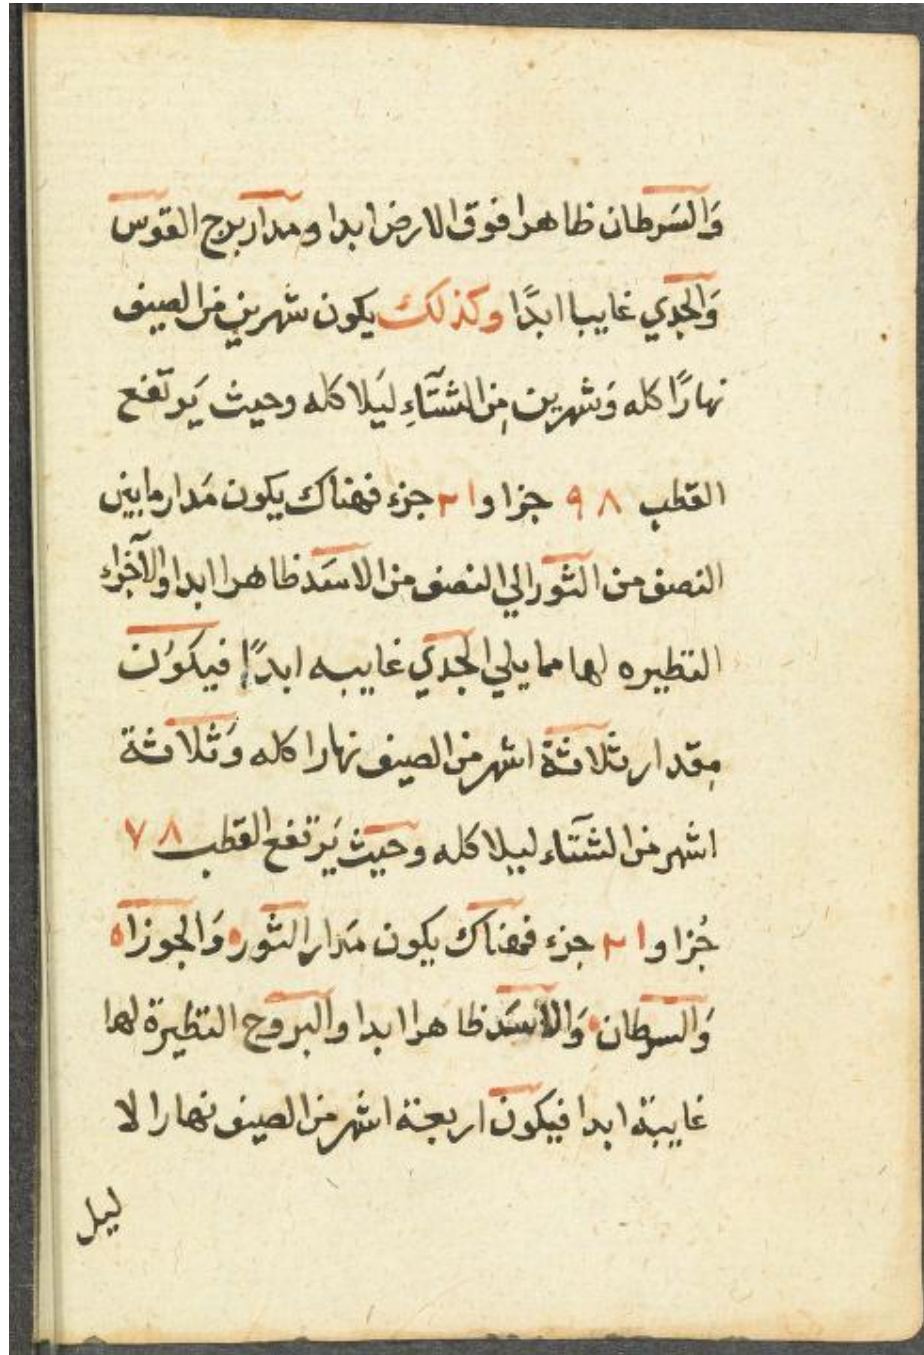 وَالسَرطان ظاهرا فوق الارض ابدا ومدار برج القوس
وَالجدي غايبا ابدًا وكذلك يكون شهرين من الصيف
نهارًا كله وَشهرين مِن الشتآءِ ليَلا كله وحيث يَرتفع
القطب ٩٨ جزا وا٣ جزء فهناك يكون مَدار مابين
النصف من الثَور الي النصف من الاسَد ظاهرا ابدا والآجزاء
النظيره لها مما يلي الجدَي غايبه ابدًا فيكوُن
مِقدار ثلاثة اشهر من الصيف نهارا كله وَثلاثة
اشهر من الشتآء ليلا كله وحيَث يَرتفع القطب ٧٨
جُزا وا٣ جزء فهناك يكون مَدار الثور ٥ وَالجوزا٥
وَالسرطان وَالاسَد ظاهرا ابدا والبروج النظيرة لها
غايبة ابدا فيكون اربعة اشهر من الصيف نهارا لا
ليل